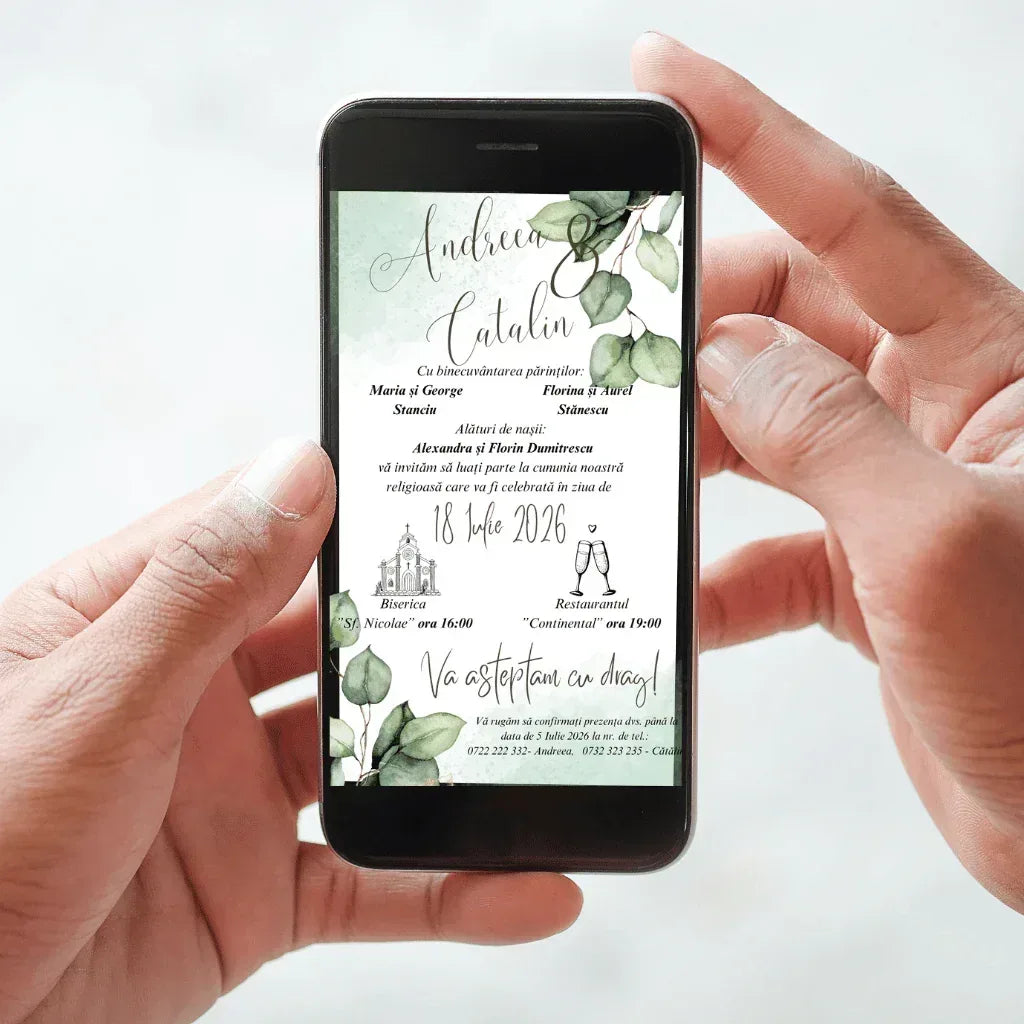 Andreea &
Catalin
Cu binecuvântarea părinților:
Maria și George Florina și Aurel
Stanciu Stănescu
Alături de nașii:
Alexandra și Florin Dumitrescu
vă invităm să luați parte la cumunia noastră
religioasă care va fi celebrată în ziua de
18 Iulie 2026
Biserica Restaurantul
"Sf. Nicolae" ora 16:00 "Continental" ora 19:00
Va așteptam cu drag!
Vă rugăm să confirmați prezența dvs. până la
data de 5 Iulie 2026 la nr. de tel.:
0722 222 332- Andreea, 0732 323 235 - Cătălin